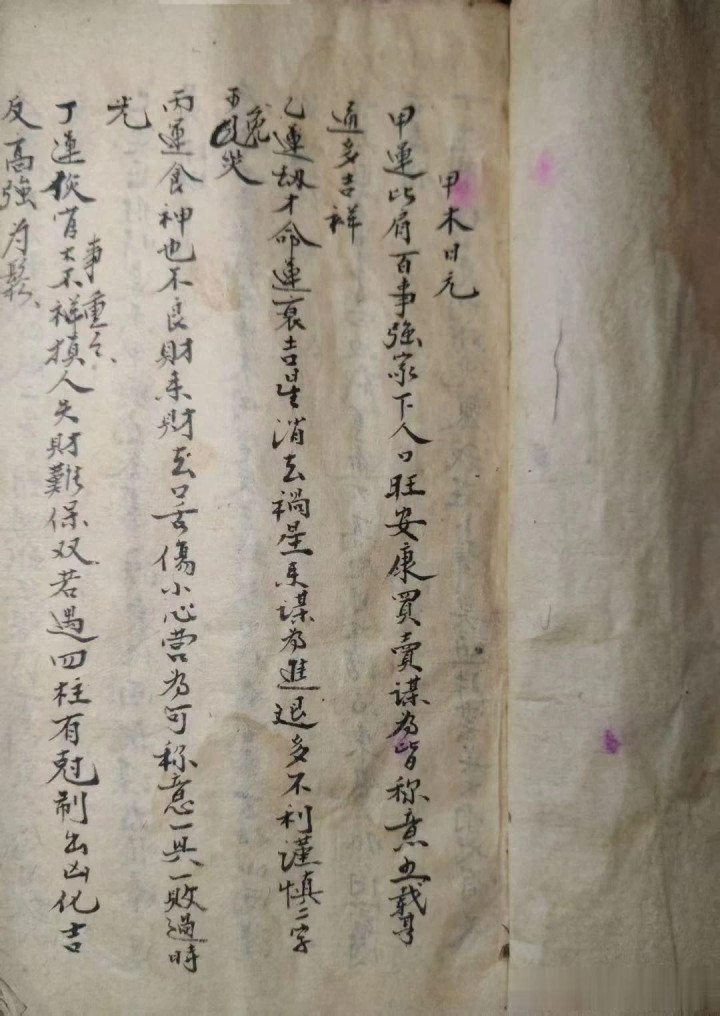 甲木日元
甲運比肩百事強家下人口旺安康買賣謀為皆称意五載亨
通多吉祥
乙運刼才命運衰吉星消去禍星来謀為進退多不利謹慎二字
可免災
丙運食神也不良財来財去口舌傷小心営為可称意一興一敗過時
光
丁運傷官大不祥損人失財難保双若遇四柱有尅制出凶化吉
事重之
反高強